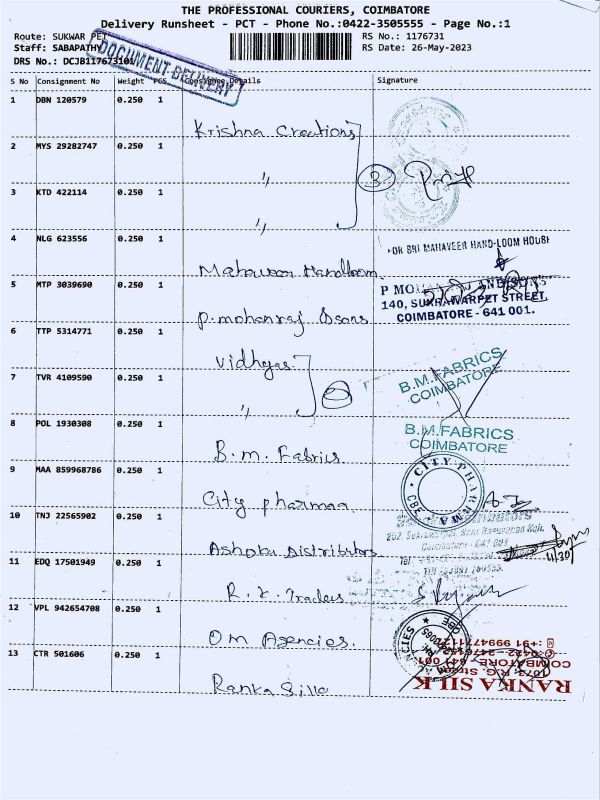 THE PROFESSIONAL COURIERS, COIMBATORE
Delivery Runsheet - PCT - Phone No.:0422-3505555 - Page No.:1
Route: SUKWAR PET
RS No.: 1176731
Staff: SABAPATHY
RS Date: 26-May-2023
DRS No.: DCJB1176731
DOCUMENT DELIVERY
S No Consignment No Weight PCS Consignee Details Signature
1 DBN 120579 0.250 1
Krishna Creations
2 MYS 29282747 0.250 1
"
3
3 KTD 422114 0.250 1
"
4 NLG 623556 0.250 1
FOR SRI MAHAVEER HAND-LOOM HOUSE
Mahaveer Handloom
5 MTP 3039690 0.250 1
140, SUKRAWARPET STREET,
COIMBATORE - 641 001.
P. mohanraj & sons
6 TTP 5314771 0.250 1
Vidhyas
B.M.FABRICS
COIMBATORE
7 TVR 4109590 0.250 1
"
8 POL 1930308 0.250 1
B.M.FABRICS
COIMBATORE
B.m. Fabrics
9 MAA 859968786 0.250 1
CITY PHARMA
CBE
City pharmaa
10 TNJ 22565902 0.250 1
Ashoka Distributors
11/30
11 EDQ 17501949 0.250 1
R.K. Traders
12 VPL 942654708 0.250 1
Om Agencies.
13 CTR 501606 0.250 1
RANKA SILK
COIMBATORE - 641 001
Ranka Silk